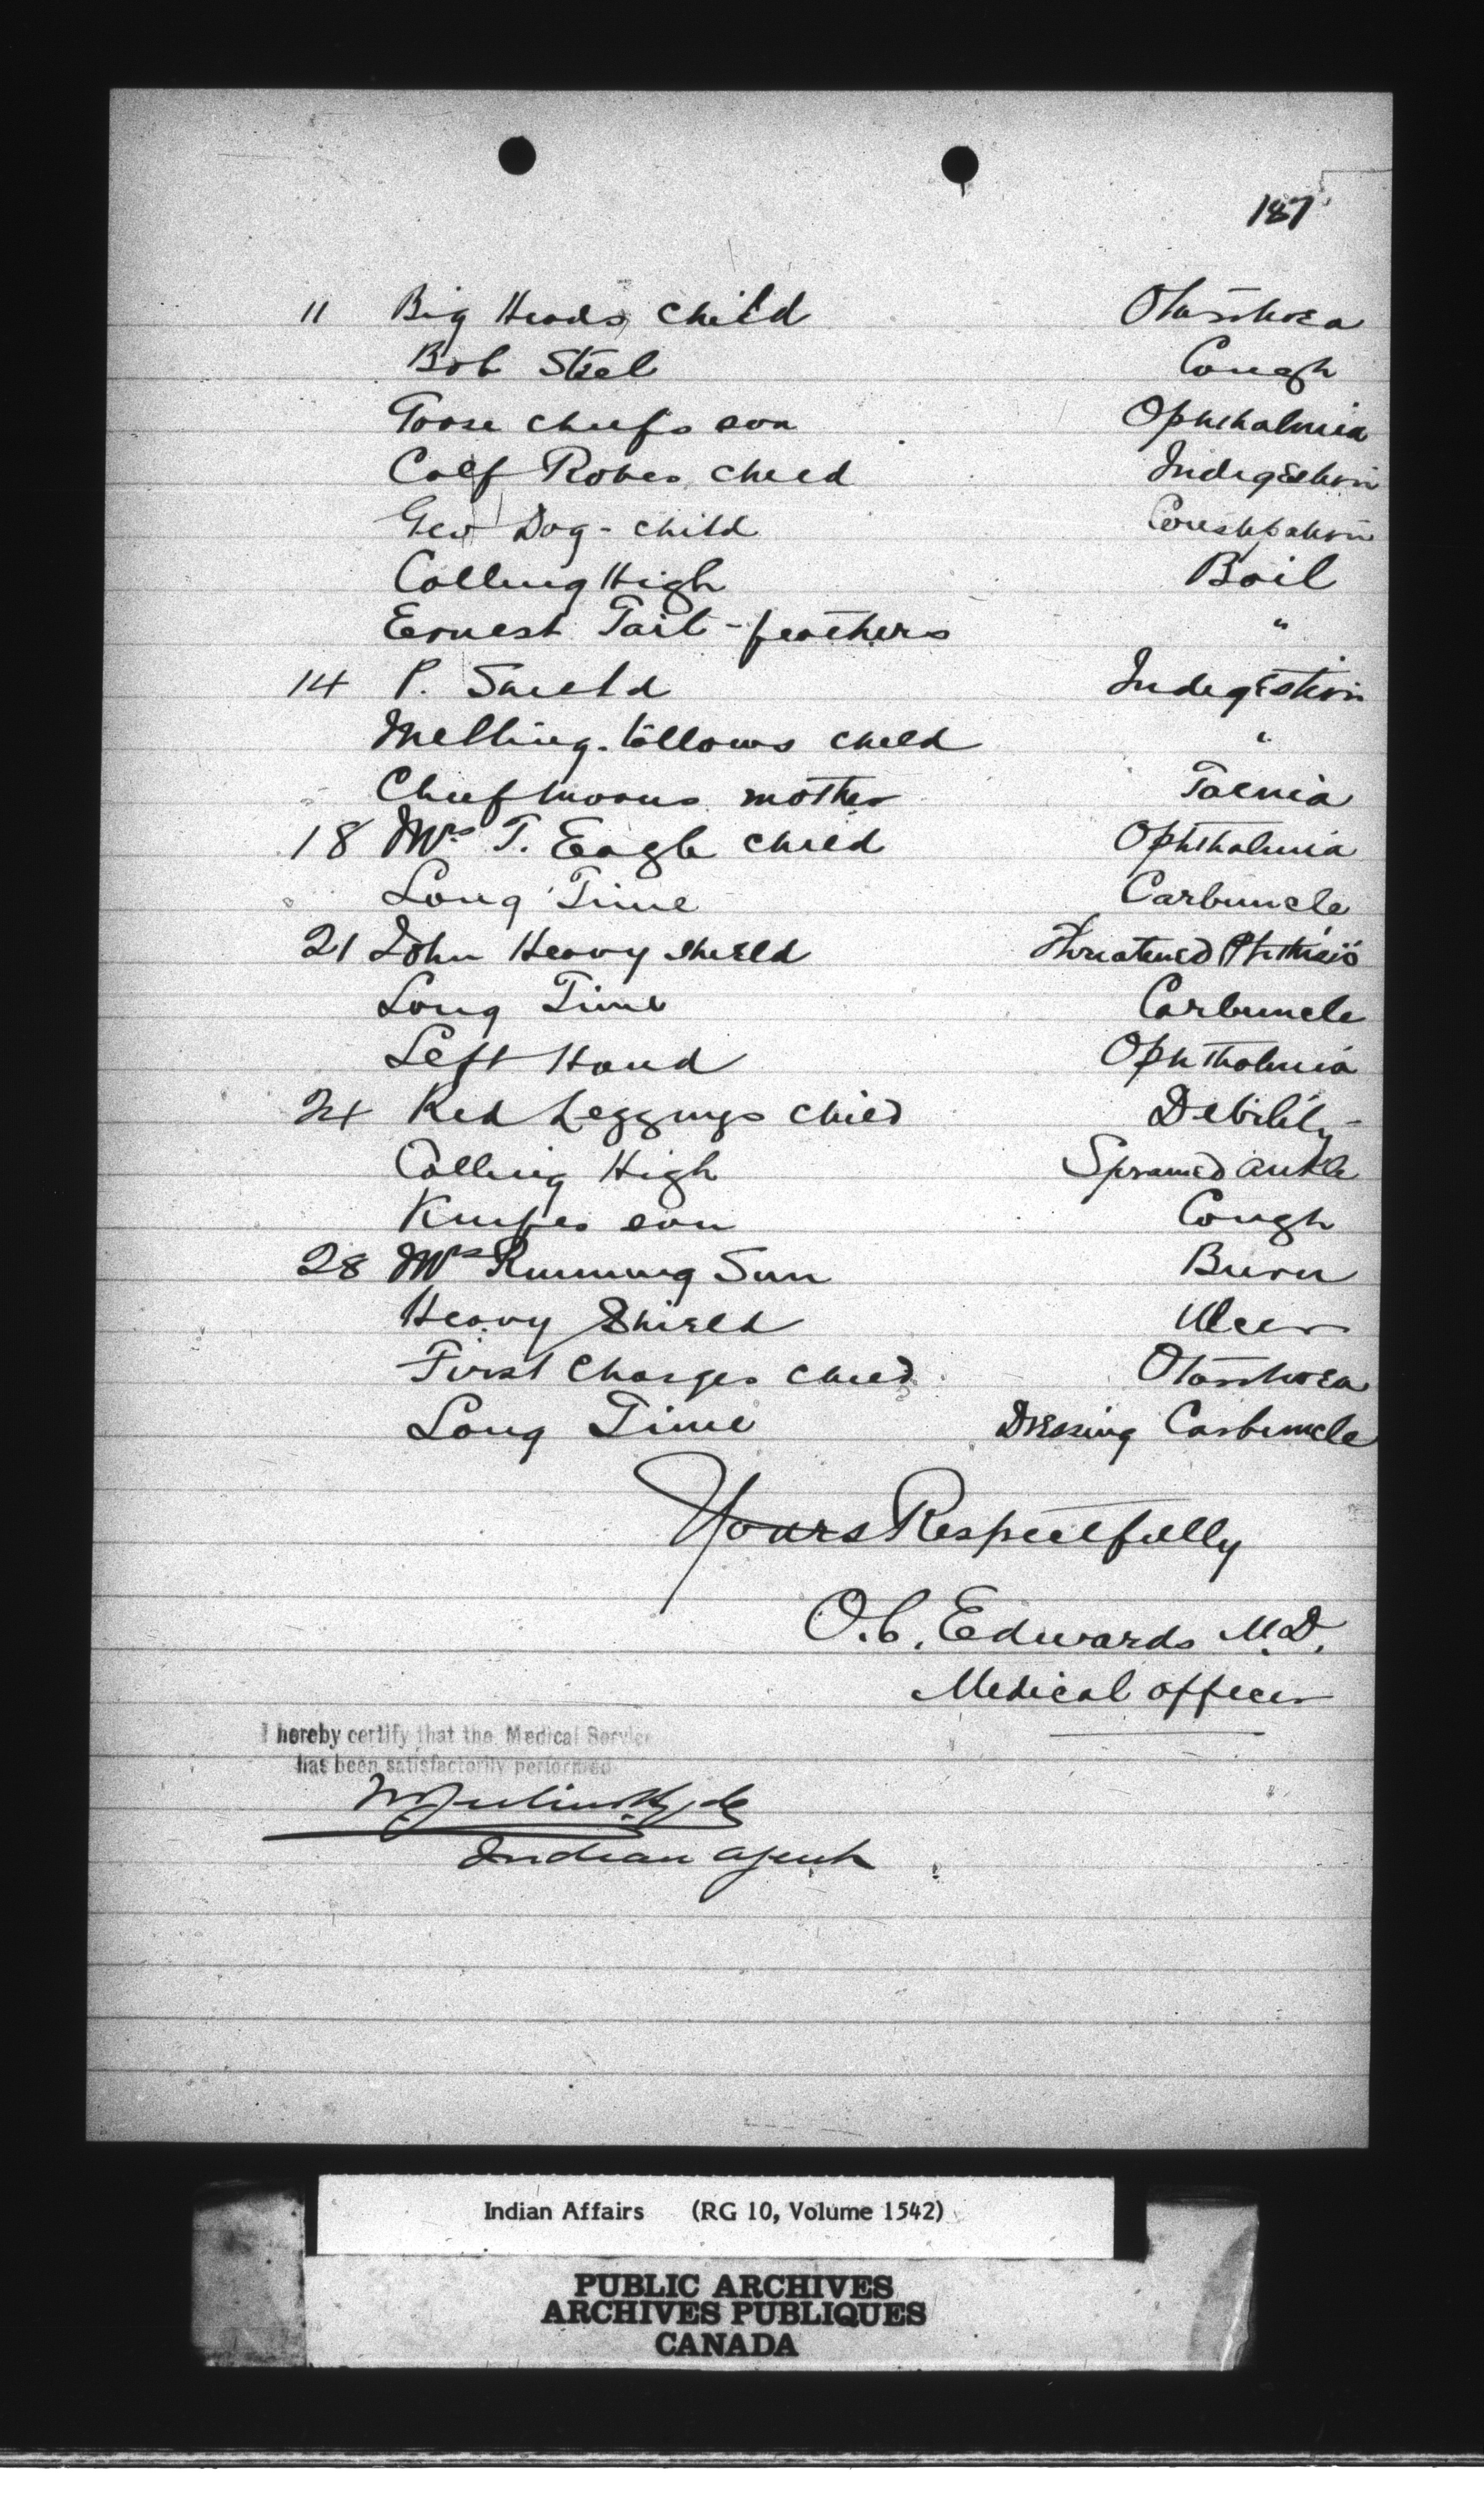 187
11 Big Heads child Otorrhoea
Bob Steel Cough
Goose chiefs son Ophthalmia
Calf Robes child Indigestion
Geo Dog - child Constipation
Calling High Boil
Ernest Tail-feathers "
14 P. Shield Indigestion
Melting-tallows child "
Chief moons mother Taenia
18 Mrs T. Eagle child Ophthalmia
Long Time Carbuncle
21 John Heavy shield Threatened Phthisis
Long Time Carbuncle
Left Hand Ophthalmia
24 Red Leggings child Debility
Calling High Sprained ankle
Knifes son Cough
28 Mrs Running Sun Burn
Heavy Shield Ulcer
First Charges child Otorrhoea
Long Time Dressing Carbuncle
Yours Respectfully
O.C. Edwards M.D.
Medical officer
I hereby certify that the Medical Service
has been satisfactorily performed
Indian agent
Indian Affairs (RG 10, Volume 1542)
PUBLIC ARCHIVES
ARCHIVES PUBLIQUES
CANADA